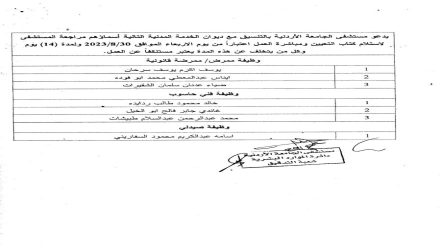 يدعو مستشفى الجامعة الأردنية بالتنسيق مع ديوان الخدمة المدنية التالية أسماؤهم مراجعة المستشفى
لاستلام كتاب التعيين ومباشرة العمل اعتباراً من يوم الاربعاء الموافق 2023/8/30 ولمدة (14) يوم
وكل من يتخلف عن هذه المدة يعتبر مستنكفاً عن العمل.
وظيفة ممرض/ ممرضة قانونية
1 يوسف اكرم يوسف سرحان
2 ايناس عبدالمعطي محمد ابو فوده
3 ضياء عدنان سلمان الشخيرات
وظيفة فني حاسوب
1 خالد محمود طالب ردايده
2 هادي جابر فالح ابو الخيل
3 محمد عبدالرحمن عبدالسلام طبيشات
وظيفة صيدلي
1 اسامه عبدالكريم محمود السفاريني
مستشفى الجامعة الأردنية
دائرة الموارد البشرية
شعبة التدقيق